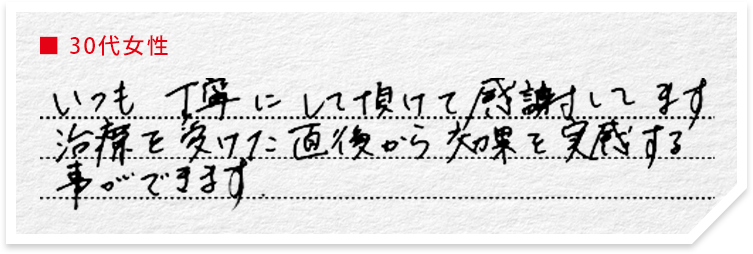 ■ 30代女性
いつも 丁寧にして頂けて感謝してます
治療を受けた直後から効果を実感する
事ができます.